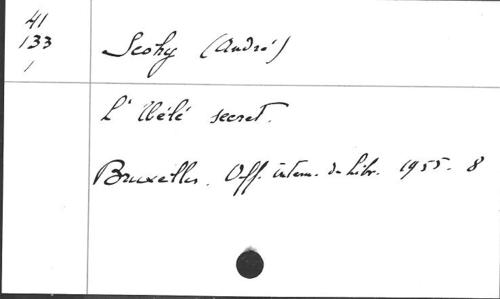 41
133
1
Scohy (André)
L'Uélé secret.
Bruxelles. Off. intern. de Libr. 1955. 8